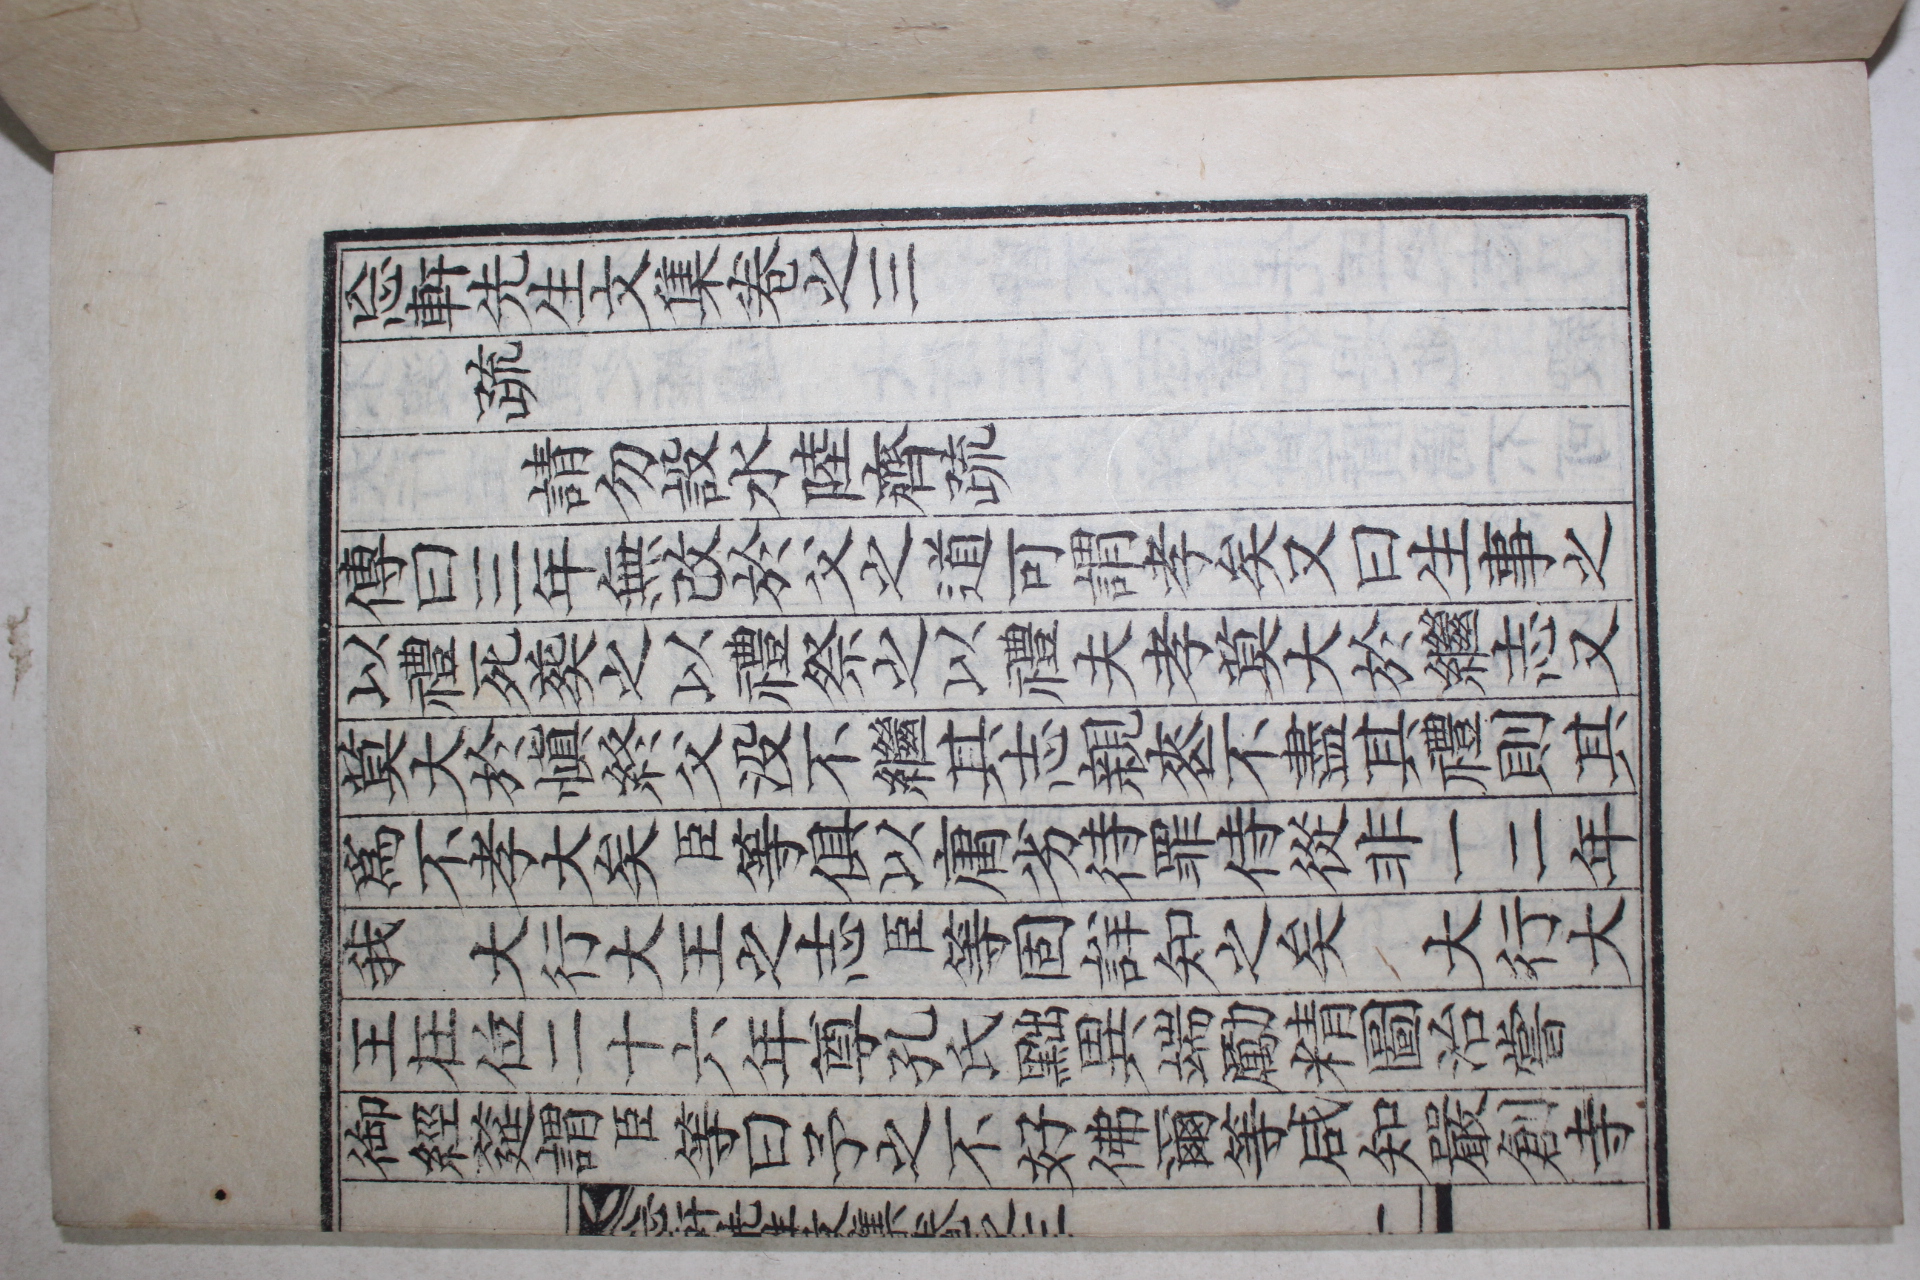 忘軒先生文集卷之三
疏
請勿設水陸齋疏
傳曰三年無改於父之道可謂孝矣又曰生事之
以禮死葬之以禮祭之以禮夫孝莫大於繼志又
莫大於愼終父沒不繼其志親喪不盡其禮則其
爲不孝大矣臣等俱以庸劣待罪侍從非一二年
我　大行大王之志臣等固詳知之矣　大行大
王在位二十六年尊孔氏黜異端勵精圖治嘗
御經筵謂臣等曰予之不好佛爾等咸知嚴創寺
忘軒先生文集卷之三　一